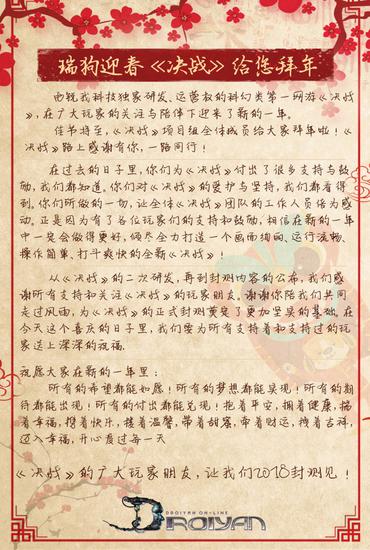 瑞狗迎春《决战》给您拜年
西钱我科技独家研发、运营权的科幻类第一网游《决战
》,在广大玩家的关注与陪伴下迎来了新的一年。
佳节将至,《决战》项目组全体成员给大家拜年啦!《
决战》路上感谢有你,一路同行!
在过去的日子里,你们为《决战》付出了很多支持与鼓
励,我们都知道。你们对《决战》的爱护与坚持,我们都看得
到。你们所做的一切,让全体《决战》团队的工作人员倍为感
动。正是因为有了各位玩家们的支持和鼓励,相信在新的一年
中一定会做得更好,倾尽全力打造一个画面绚丽、运行流畅、
操作简单、打斗爽快的全新《决战》!
从《决战》的二次研发,再到封测内容的公布,我们感
谢所有支持和关注《决战》的玩家朋友,谢谢你陪我们共同
走过风雨,为《决战》的正式封测奠定了更加坚实的基础。在
今天这个喜庆的日子里,我们要为所有支持着和支持过的玩
家送上深深的祝福。
祝愿大家在新的一年里:
所有的希望都能如愿!所有的梦想都能实现!所有的期
待都能出现!所有的付出都能兑现!抱着平安,拥着健康,揣
着幸福,携着快乐,搂着温馨,带着甜蜜,牵着财运,拽着吉祥,
迈入幸福,开心度过每一天
《决战》的广大玩家朋友,让我们2018封测见!
DROIYAN ON-LINE
DROIYAN